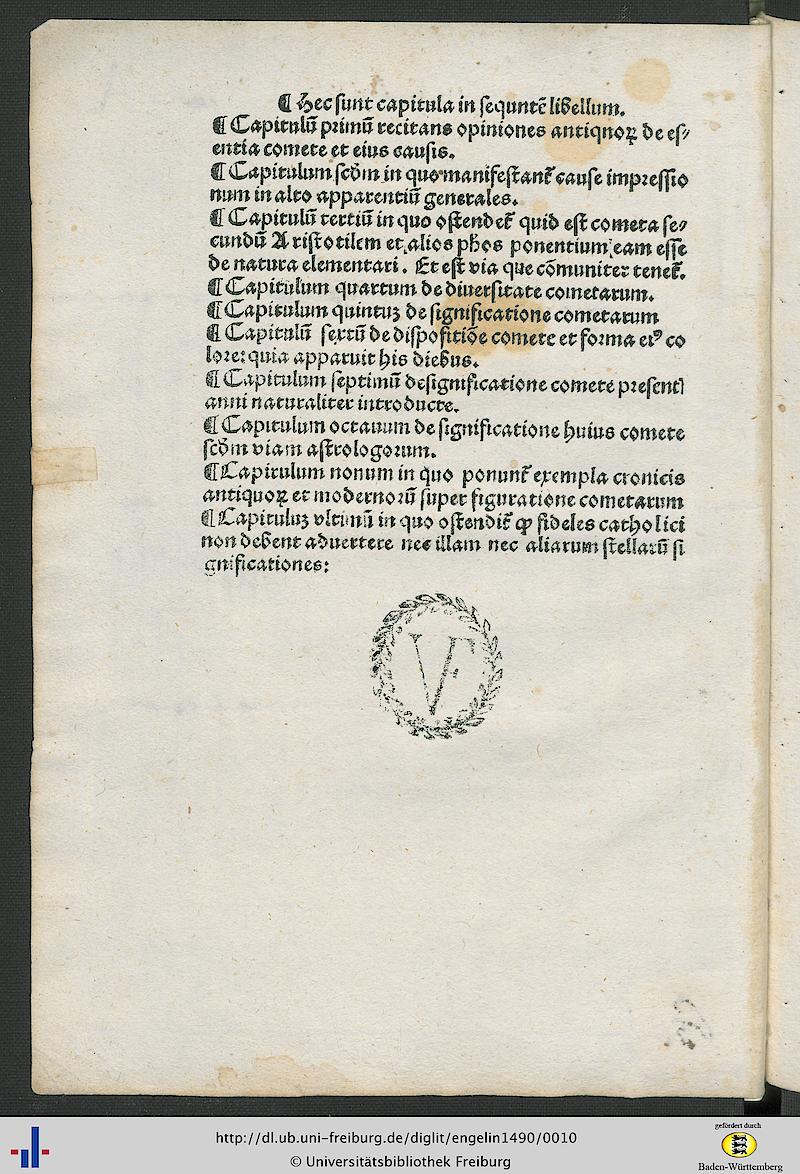 ¶ Hec sunt capitula in sequntē libellum.
¶ Capitulū primū recitans opiniones antiquoꝝ de es⸗
entia comete et eius causis.
¶ Capitulum scđm in quo manifestant᷑ cause impressio
num in alto apparentiū generales.
¶ Capitulū tertiū in quo ostendet᷑ quid est cometa se⸗
cundū Aristotilem et alios phōs ponentium eam esse
de natura elementari. Et est via que cōmuniter tenet᷑.
¶ Capitulum quartum de diuersitate cometarum.
¶ Capitulum quintuꝫ de significatione cometarum
¶ Capitulū sextū de dispositiōe comete et forma eiꝰ co
lore: quia apparuit his diebus.
¶ Capitulum septimū designificatione comete present⸗
anni naturaliter introducte.
¶ Capitulum octauum de significatione huius comete
scđm viam astrologorum.
¶ Capitulum nonum in quo ponunt᷑ exempla cronicis
antiquoꝝ et modernorū super figuratione cometarum
¶ Capituluꝫ vltimū in quo ostendit᷑ ꝙ fideles catholici
non debent aduertere nec illam nec aliarum stellarū si
gnificationes:
VF
http://dl.ub.uni-freiburg.de/diglit/engelin1490/0010
© Universitätsbibliothek Freiburg
gefördert durch
Baden-Württemberg